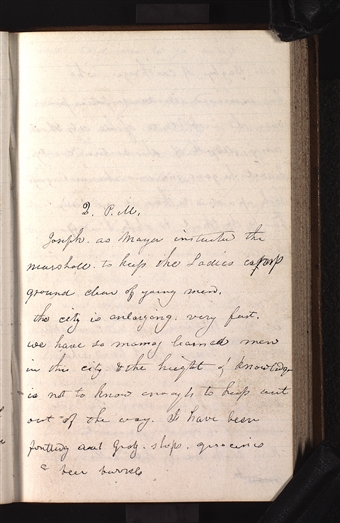 2. P.M.
Joseph. as Mayor instructed the
marshall. to keep the Ladies
ground clear of young men.
the city is enlarging. very fast.
we have so many learned men
in this city & the height of knowledge
is not to know enough to keep out
out of the way. I have been
and Grog. shops. groceries
& beer barrels